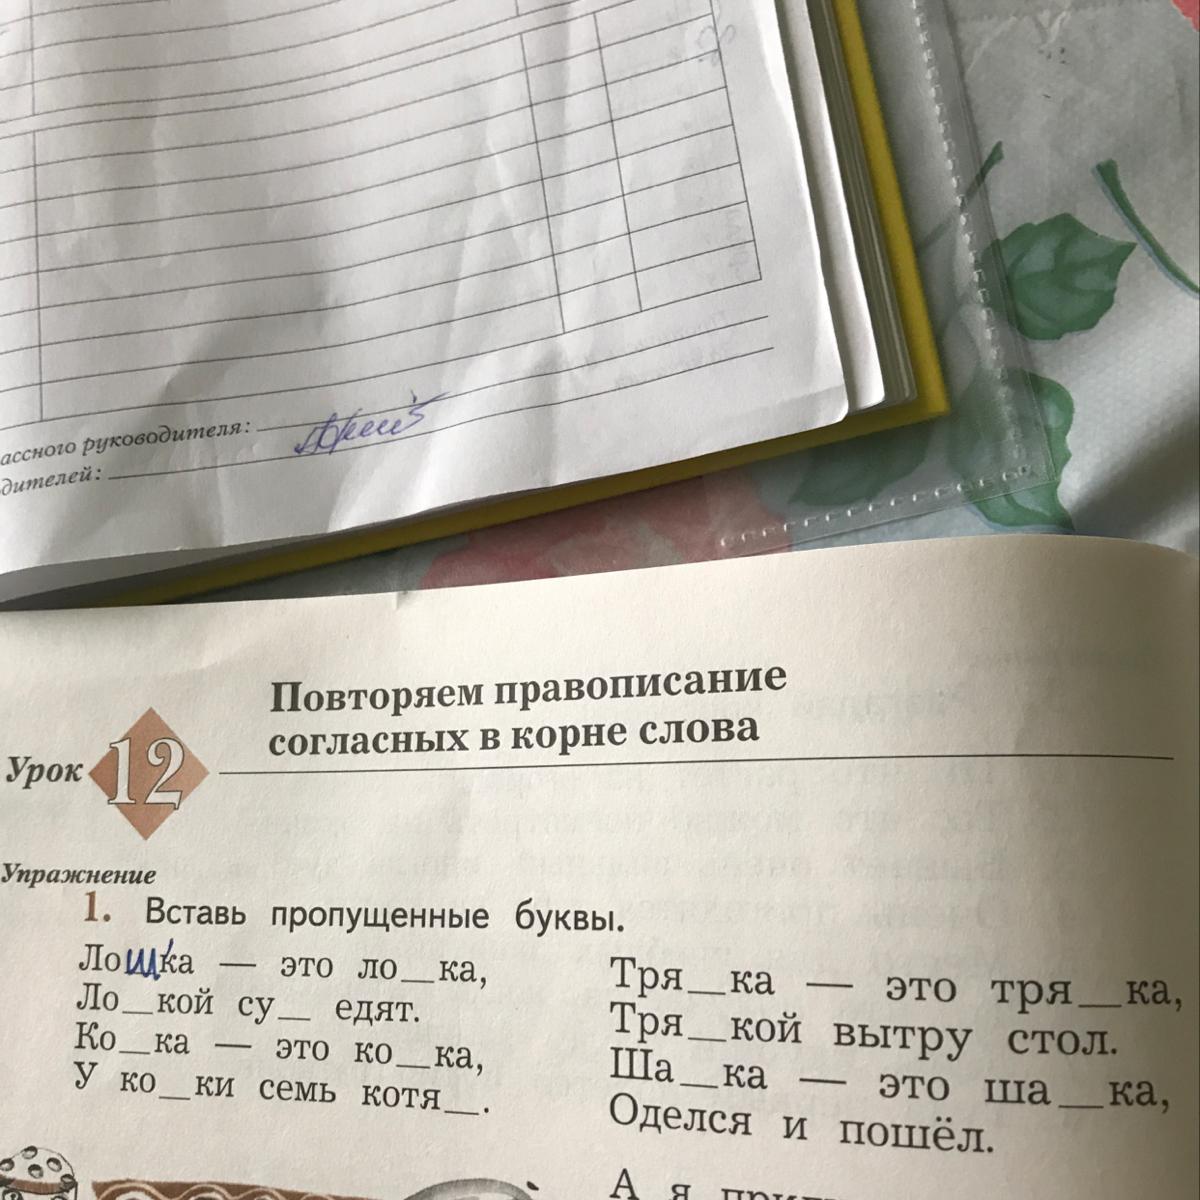 ассного руководителя:
дителей:
Повторяем правописание
согласных в корне слова
Урок 12
Упражнение
1. Вставь пропущенные буквы.
Лошка — это ло_ка,
Ло_кой су_ едят.
Ко_ка — это ко_ка,
У ко_ки семь котя_.
Тря_ка — это тря_ка,
Тря_кой вытру стол.
Ша_ка — это ша_ка,
Оделся и пошёл.
А я